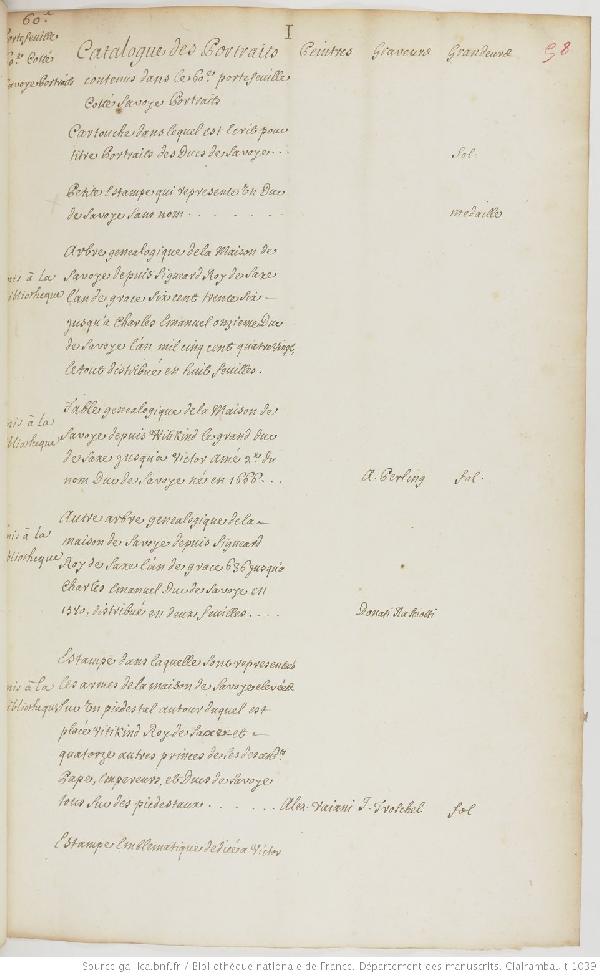 60.e
I
portefeuille
60.e Cotté
Savoye Portraits
Catalogue des Portraits Peintres Graveurs Grandeurs 98
contenus dans le 60.e portefeuille
Cotté Savoye Portraits
Cartouche dans lequel est Ecrit pour
titre Portraits des Ducs de Savoye... fol.
Petite Estampe qui represente un Duc
de Savoye sans nom........ medaille
Arbre genealogique de la Maison de
mis à la Savoye depuis Siguard Roy de Saxe
bibliotheque l'an de grace Six cent trente Six
jusqu'à Charles Emanuel onzieme Duc
de Savoye l'an mil cinq cent quatre vingt,
le tout distribué en huit feuilles.
Table genealogique de la Maison de
mis à la Savoye depuis Vitikind le grand Duc
bibliotheque de Saxe jusqu'a Victor Amé 2.e du
nom Duc de Savoye né en 1666... A. Perling fol.
Autre arbre genealogique de la
mis à la maison de Savoye depuis Siguard
bibliotheque Roy de Saxe l'an de grace 636 jusqu'a
Charles Emanuel Duc de Savoye en
1580, distribué en deux feuilles.... Donati
Estampe dans laquelle sont representés
mis à la les armes de la maison de Savoye elevée
bibliotheque Sur un piedestal autour duquel est
placé Vitikind Roy de Saxe et
quatorze autres princes de ses descend.ts
Papes, Empereurs, et Ducs de Savoye
tous Sur des piedestaux....... Alex. Vaiani J. Troschel fol
Estampe Emblematique dediée a Victor
Source gallica.bnf.fr / Bibliothèque nationale de France. Département des manuscrits. Clairambault 1039